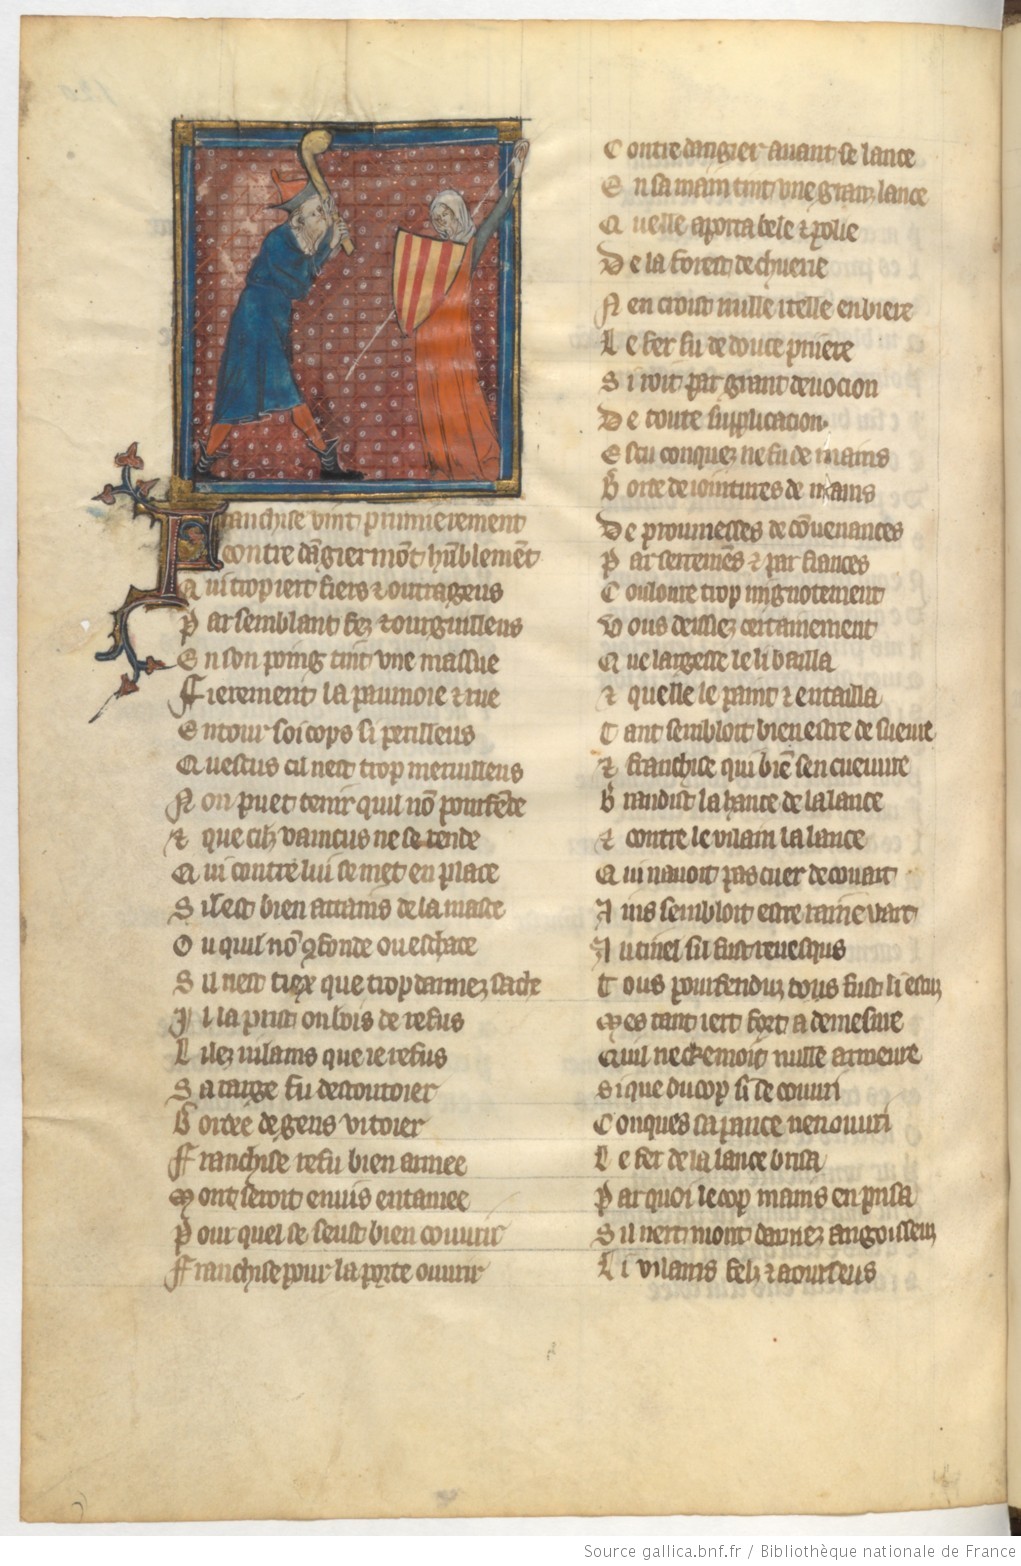 Franchise vint premierement
contre dãgier mõt hũblemẽt
Qui trop iert fiers ⁊ outrageus
Par semblant fez ⁊ orguilleus
En son poing tint une massue
Fierement la paumoie ⁊ rue
Entour soi cops si perilleus
Qu escus cil nest trop merveilleus
Non puet tenir quil nõ pourfẽde
⁊ que cilz vaincus ne se rende
Qui contre lui se met en place
Sil est bien attains de la mace
Ou quil nõ confonde ou eschace
Sil nest tiex que trop darmez sache
Il la prist ou bois de refus
Li lez vilains que ie refus
Sa targe fu destoutoier
Bordee de gens vitoier
Franchise refu bien armee
Mont seroit envis entamee
Pour quel se seust bien couvrir
Franchise pour la porte ouvrir
Contre dangier avant se lance
En sa main tint une grant lance
Quelle aporta bele ⁊ polie
De la forest de chuerie
Nen croist nulle itelle en biere
Le fer fu de douce priere
Si rot par grant devocion
De toute supplicacion
Escu conquez ne fu de mains
Borde de iointures de mains
De proumesses de cõvenances
Par serremẽs ⁊ par fiances
Couloure trop mignotement
Vous deissiez certainement
Que largesse le li bailla
⁊ quelle le paint ⁊ entailla
Tant sembloit bien estre de sueuvre
⁊ franchise qui biẽ sen cueuvre
Brandist la hante de la lance
⁊ contre le vilain la lance
Qui navoit pas cuer de couart
Ains sembloit estre raine vart
Au tinel sil fust revesqus
Tous pourfenduz tous fust li escuz
Mes tant iert fort a demesure
Quil ne cremoit nulle armeure
Si que du cop si se couvri
Conques sa pance nen ouvri
Le fer de la lance brisa
Par quoi le cop mains en prisa
Si nert mont darmez angoisseuz
Li vilains felz ⁊ aourseus
Source gallica.bnf.fr / Bibliothèque nationale de France